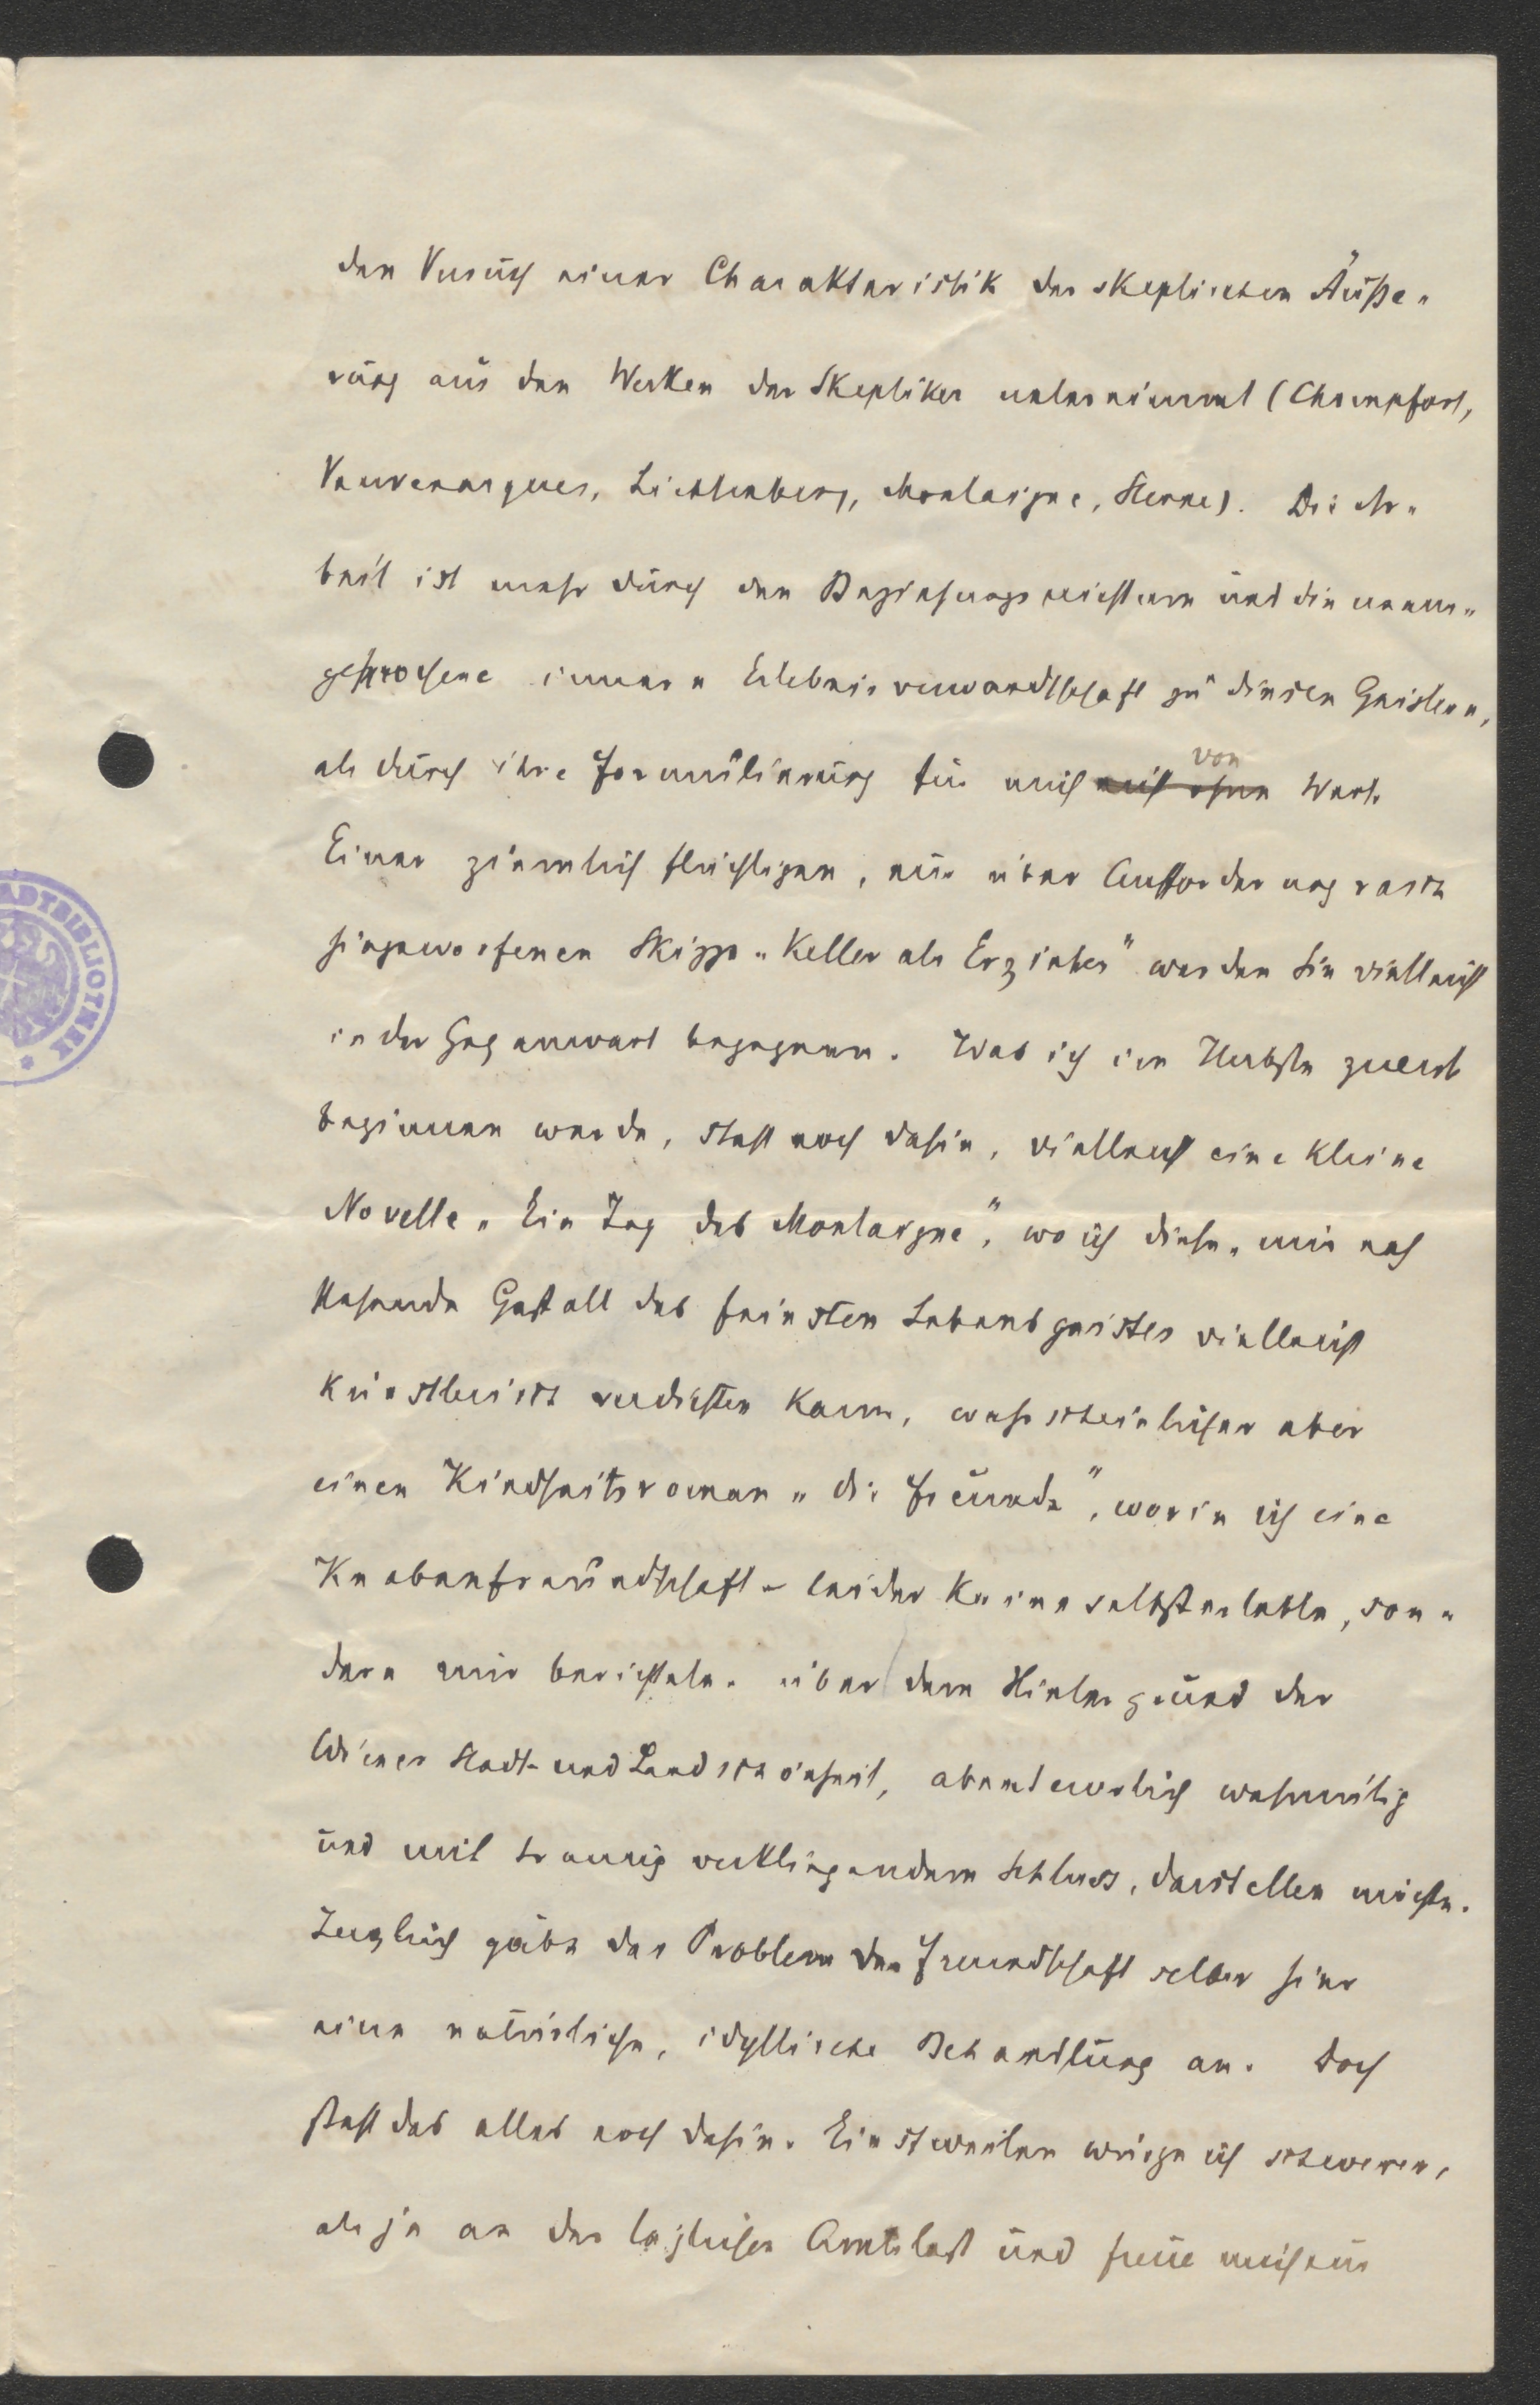 den Versuch einer Charakteristik der skeptischen Äuße-
rung aus den Werken der Skeptiker unternimmt (Champfort,
Vauvenargues, Lichtenberg, Montaigne, Sterne). Die Ar-
beit ist mehr durch den Beziehungsreichtum und die unaus-
gesprochene innere Erlebnisverwandtschaft zu diesen Geistern,
als durch ihre Formulierung für mich nicht ohne von Wert.
Einer ziemlich flüchtigen, nur über Aufforderung rasch
hingeworfenen Skizze „Keller als Erzieher" werden Sie vielleicht
in der Gegenwart begegnen. Was ich im Herbste zuerst
beginnen werde, steht noch dahin, vielleicht eine kleine
Novelle „Ein Tag des Montaigne", wo ich diese, mir nah
stehende Gestalt des feinsten Lebensgeistes vielleicht
künstlerisch verdichten kann, wahrscheinlicher aber
einen Kindheitsroman „die Freunde", worin ich eine
Knabenfreundschaft – leider keine selbsterlebte, son-
dern mir berichtete – über dem Hintergrund der
Wiener Stadt- und Landschönheit, abenteuerlich wehmütig
und mit traurig verklingendem Schluss, darstellen möchte.
Zugleich gäbe das Problem der Freundschaft selber hier
eine natürliche, idyllische Behandlung an. Doch
steht das alles noch dahin. Einstweilen würge ich schwerer,
als je an der täglichen Amtslast und freue mich nur